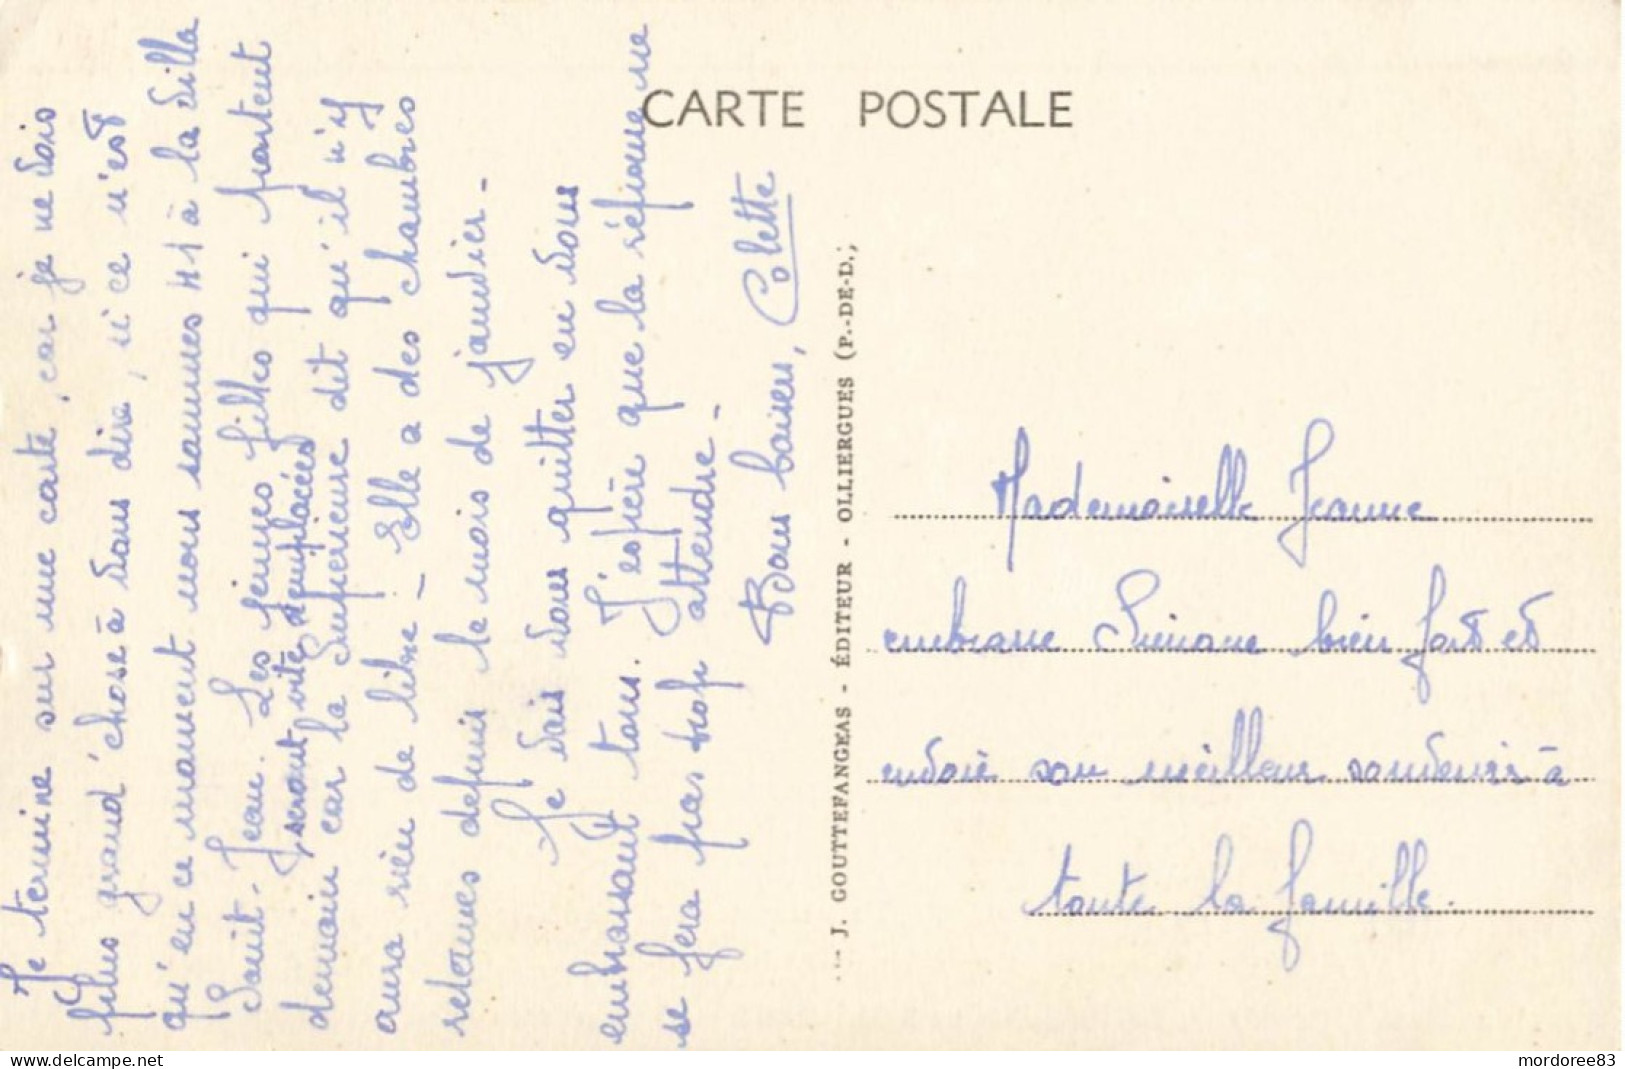 CARTE POSTALE
Je termine sur une carte, car je ne vois
plus grand'chose à vous dire, si ce n'est
qu'en ce moment nous sommes 41 à la villa
Saint-Jean. Les jeunes filles qui partent
demain seront vite remplacées
car la Supérieure dit qu'il n'y
aura rien de libre - Elle a des chambres
retenues depuis le mois de janvier -
Je vais vous quitter en vous
embrassant tous. J'espère que la réponse ne
se fera pas trop attendre -
Bons baisers, Colette
J. GOUTTEFANGEAS - ÉDITEUR - OLLIERGUES (P.-DE-D.)
Mademoiselle Jeanne
embrasse Simone bien fort et
envoie son meilleur souvenir à
toute la famille.
delcampe.net
mordoree83